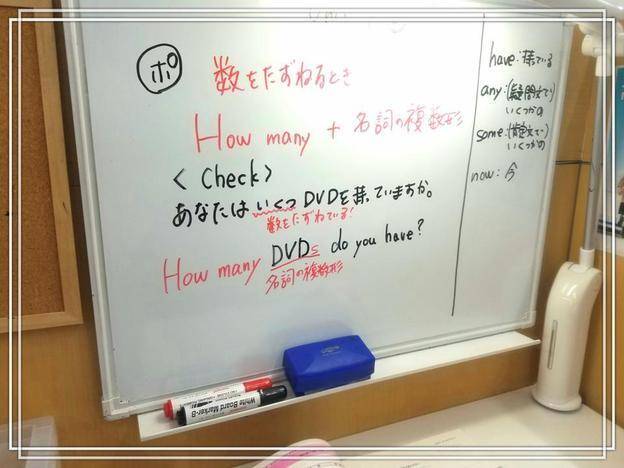 ポ
数をたずねるとき
How many + 名詞の複数形
< Check >
あなたは いくつ DVDを持っていますか。
数をたずねている!
How many DVDs do you have?
名詞の複数形
have: 持っている
any: (疑問文で)
いくつかの
some: (肯定文で)
いくつかの
now: 今
White Board Marker-B